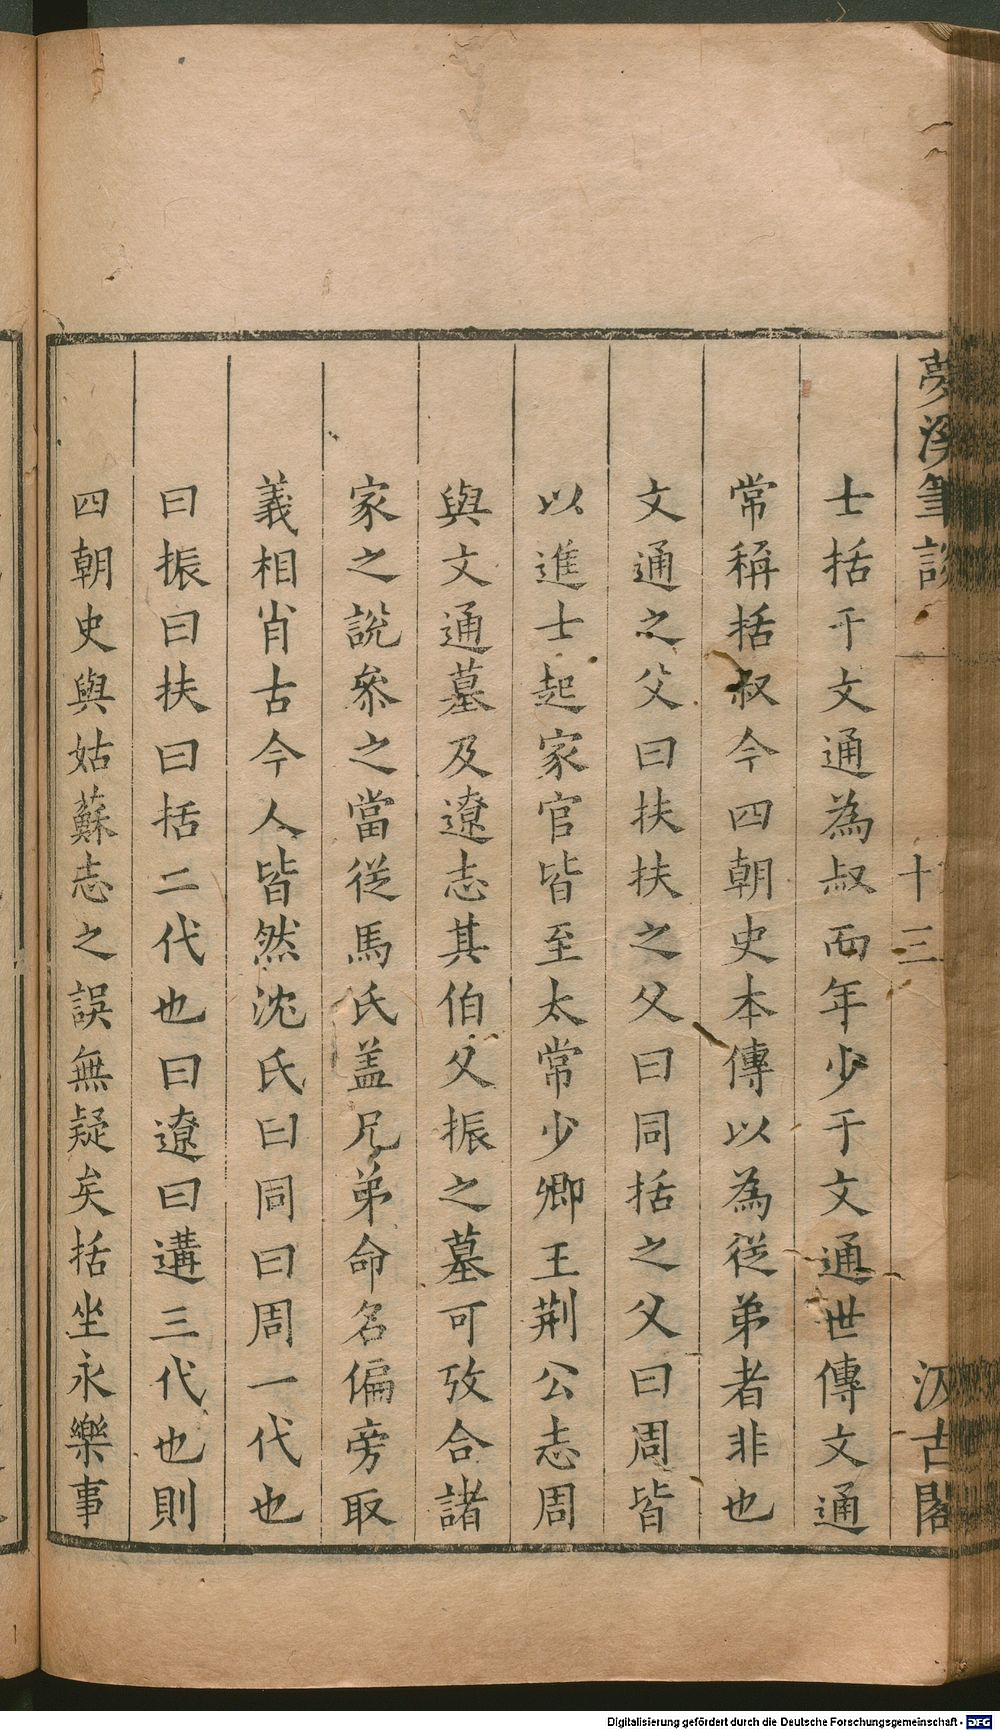 夢溪筆談
十三
汲古閣
士括于文通為叔而年少于文通世傳文通
常稱括叔今四朝史本傳以為從弟者非也
文通之父曰扶扶之父曰同括之父曰周皆
以進士起家官皆至太常少卿王荆公志周
與文通墓及遼志其伯父振之墓可攷合諸
家之說叅之當從馬氏盖兄弟命名偏旁取
義相肖古今人皆然沈氏曰同曰周一代也
曰振曰扶曰括二代也曰遼曰遘三代也則
四朝史與姑蘇志之誤無疑矣括坐永樂事
Digitalisierung gefördert durch die Deutsche Forschungsgemeinschaft - DFG